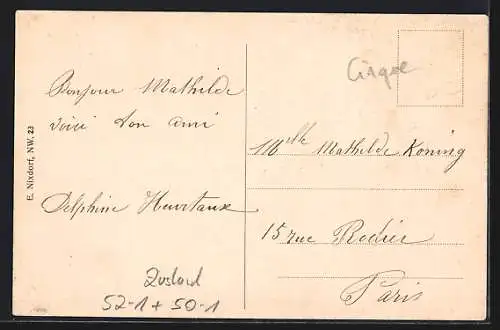 Bonjour Mathilde
voici ton ami
Delphine Heurtaux
E. Nixdorf, NW. 23
Cirque
Mlle Mathilde Koning
15 rue Rodier
Paris
Zustand
52-1 + 50-1